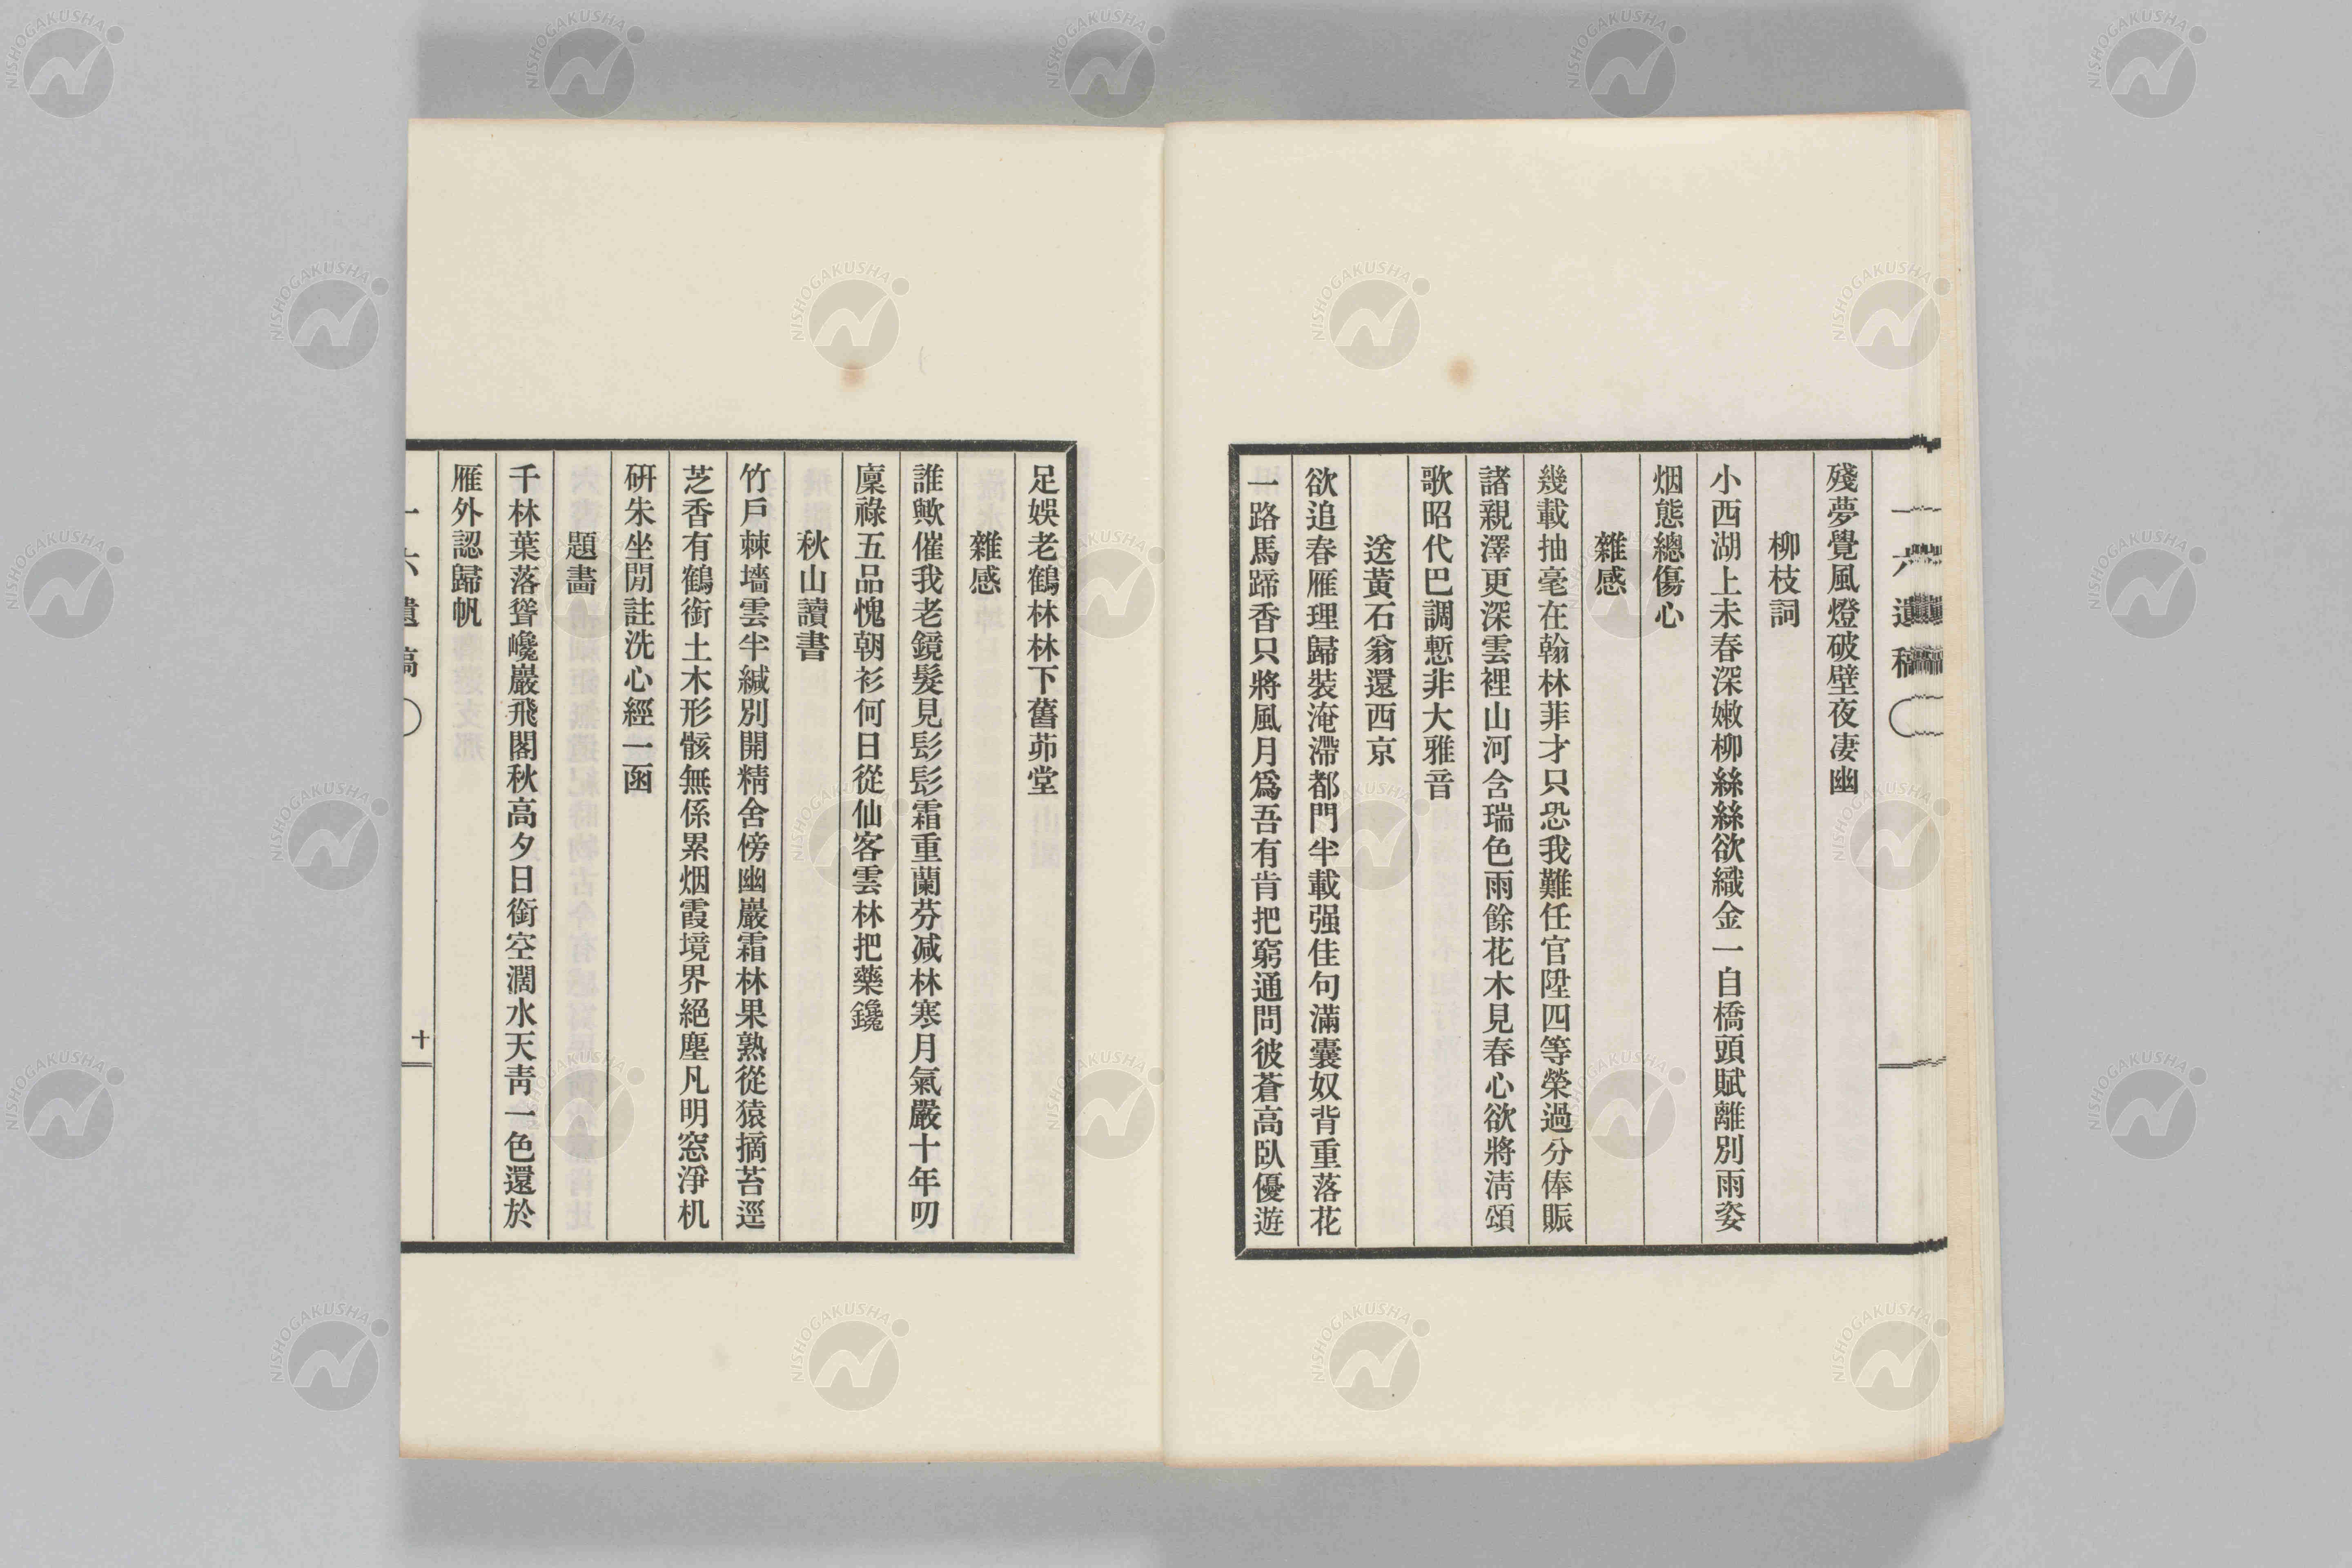 殘夢覺風燈破壁夜凄幽
柳枝詞
小西湖上未春深嫩柳絲絲欲織金一自橋頭賦離別雨姿
烟態總傷心
雜感
幾載抽毫在翰林菲才只恐我難任官陞四等榮過分俸賑
諸親澤更深雲裡山河含瑞色雨餘花木見春心欲將淸頌
歌昭代巴調慙非大雅音
送黃石翁還西京
欲追春雁理歸裝淹滯都門半載强佳句滿囊奴背重落花
一路馬蹄香只將風月爲吾有肯把窮通問彼蒼高臥優遊
足娛老鶴林林下舊茆堂
雜感
誰歟催我老鏡髮見髟髟霜重蘭芬減林寒月氣嚴十年叨
廩祿五品愧朝衫何日從仙客雲林把藥鑱
秋山讀書
竹戶棘墻雲半緘別開精舍傍幽巖霜林果熟從猿摘苔逕
芝香有鶴銜土木形骸無係累烟霞境界絕塵凡明窓淨机
研朱坐閒註洗心經一函
題畵
千林葉落聳巉巖飛閣秋高夕日銜空濶水天靑一色還於
雁外認歸帆
一六遺稿
十
NISHOGAKUSHA